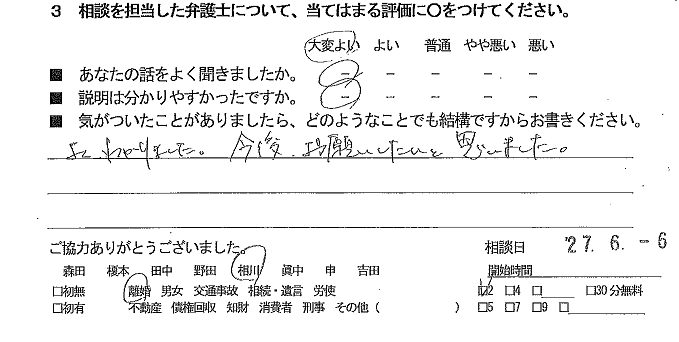 3 相談を担当した弁護士について、当てはまる評価に〇をつけてください。
大変よい よい 普通 やや悪い 悪い
■ あなたの話をよく聞きましたか。 - - - - -
■ 説明は分かりやすかったですか。 - - - - -
■ 気がついたことがありましたら、どのようなことでも結構ですからお書きください。
よくわかりました。今後、お願いしたいと思いました。
ご協力ありがとうございました。 相談日 '27. 6. -6
森田 榎本 田中 野田 相川 眞中 申 吉田 開始時間
□初無 離婚 男女 交通事故 相続・遺言 労使 □2 □4 □ □30分無料
□初有 不動産 債権回収 知財 消費者 刑事 その他 ( ) □5 □7 □9 □